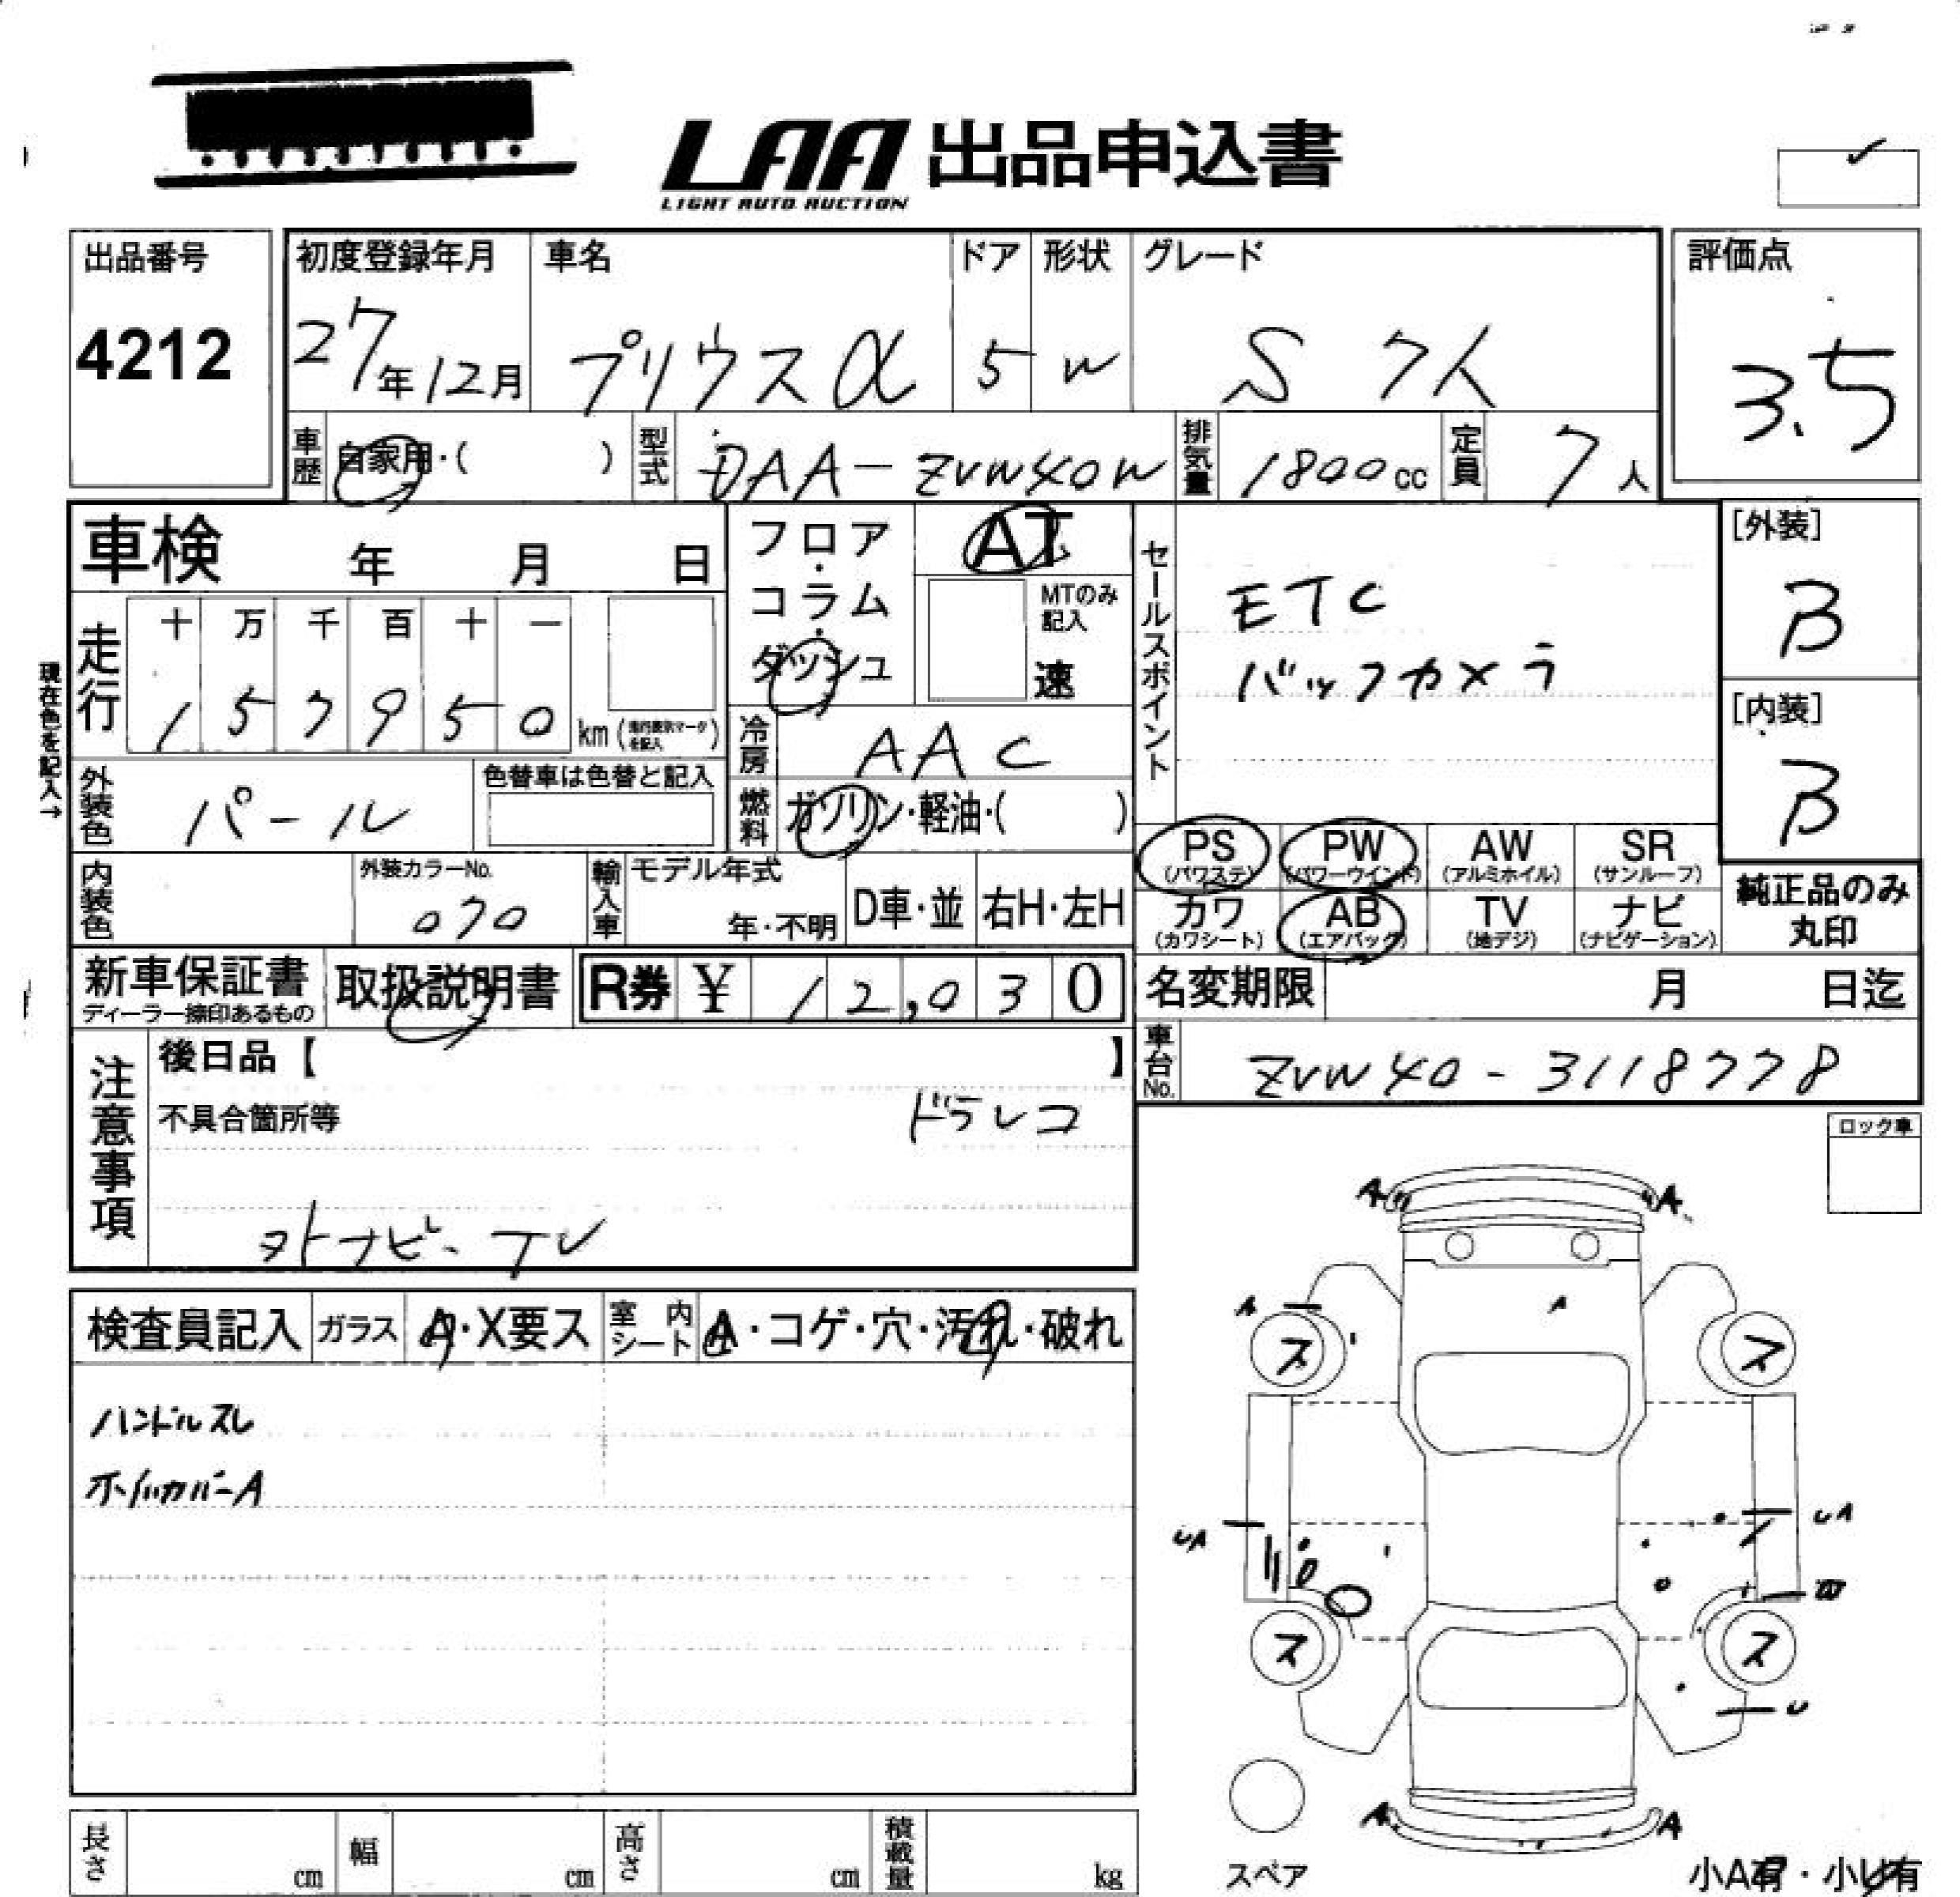 LAA 出品申込書
LIGHT AUTO AUCTION
出品番号
4212
初度登録年月
27年12月
車名
プリウスα
ドア
5
形状
W
グレード
S 7人
評価点
3.5
車歴
自家用・( )
型式
DAA-ZVW40W
排気量
1800cc
定員
7人
車検 年 月 日
フロア・コラム・ダッシュ
AT
MTのみ記入
速
セールスポイント
ETC
バックカメラ
[外装]
B
[内装]
B
現在色を記入→
走行
十 万 千 百 十 一
1 5 7 9 5 0 km (走行表示マークを記入)
冷房
AAC
外装色
パール
色替車は色替と記入
燃料
ガソリン・軽油・( )
PS (パワステ)
PW (パワーウインド)
AW (アルミホイル)
SR (サンルーフ)
カワ (カワシート)
AB (エアバック)
TV (地デジ)
ナビ (ナビゲーション)
純正品のみ丸印
内装色
外装カラーNo.
070
輸入車
モデル年式
年・不明
D車・並
右H・左H
新車保証書
ディーラー捺印あるもの
取扱説明書
R券 ¥ 12,030
名変期限 月 日迄
車台No.
ZVW40-3118778
注意事項
後日品【 】
不具合箇所等
ドラレコ
ヌトナビ・TV
ロック車
検査員記入
ガラス
A・X要ス
室内シート
A・コゲ・穴・汚れ・破れ
ハンドルスレ
ホイルカバーA
A A
A A
ス ス
UA UA
W
ス ス
U
A A
スペア
小A有・小U有
長さ cm
幅 cm
高さ cm
積載量 kg